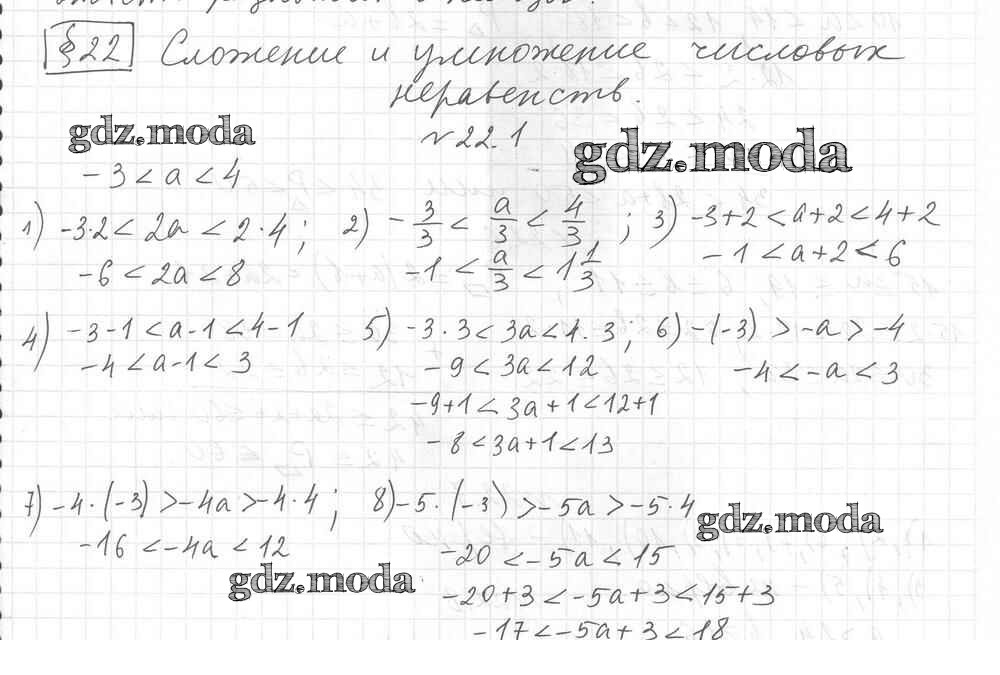 §22 Сложение и умножение числовых
неравенств.
gdz.moda
№ 22.1
gdz.moda
-3 < a < 4
1) -3·2 < 2a < 2·4;
-6 < 2a < 8
2) -3/3 < a/3 < 4/3;
-1 < a/3 < 1 1/3
3) -3+2 < a+2 < 4+2
-1 < a+2 < 6
4) -3-1 < a-1 < 4-1
-4 < a-1 < 3
5) -3·3 < 3a < 4·3;
-9 < 3a < 12
-9+1 < 3a+1 < 12+1
-8 < 3a+1 < 13
6) -(-3) > -a > -4
-4 < -a < 3
7) -4·(-3) > -4a > -4·4;
-16 < -4a < 12
8) -5·(-3) > -5a > -5·4
-20 < -5a < 15
-20+3 < -5a+3 < 15+3
-17 < -5a+3 < 18
gdz.moda
gdz.moda